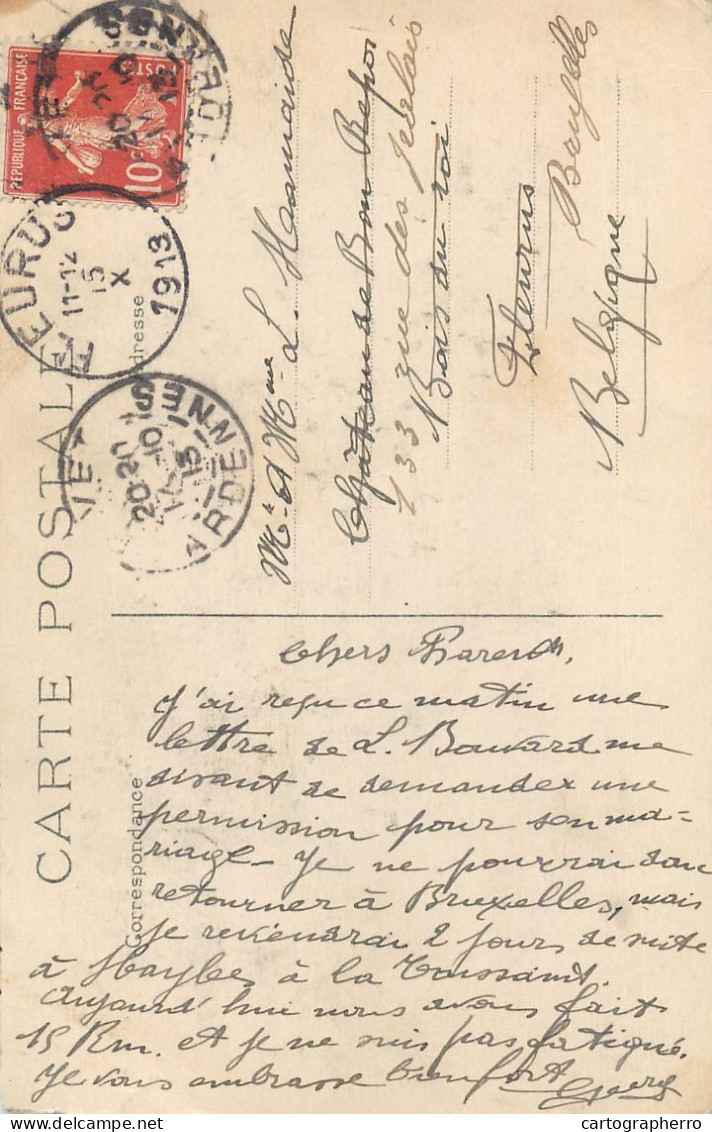 CARTE POSTALE
Correspondance
Adresse
RÉPUBLIQUE FRANÇAISE
POSTES
10c
FLEURUS
11-12
15
X
1913
ARDENNES
20 30
14 - 10
13
Mr et Mme L. Hamaide
Château de Bon Repos
133 rue des
Bois du roi
Fleurus
Bruxelles
Belgique
Chers Parents,
J'ai reçu ce matin une
lettre de L. Bouvard me
disant de demander une
permission pour son ma-
riage - Je ne pourrai donc
retourner à Bruxelles, mais
je reviendrai 2 jours de suite
à Haybes à la Toussaint.
Aujourd'hui nous avons fait
15 Km. et je ne suis pas fatigué.
Je vous embrasse bien fort
cartographerro